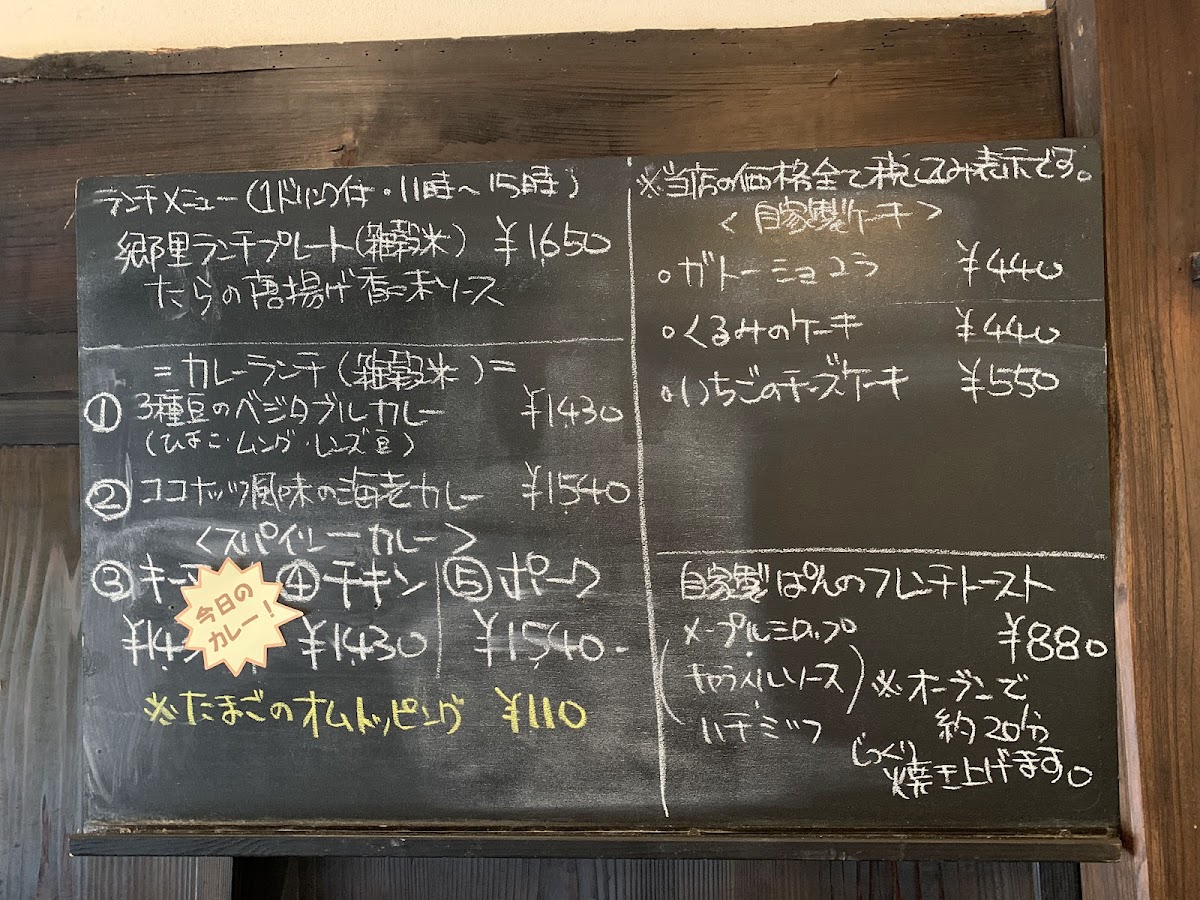 ランチメニュー(1ドリンク付・11時～15時)
郷里ランチプレート(雑穀米) ¥1650
たらの唐揚げ香味ソース
=カレーランチ(雑穀米)=
① 3種豆のベジタブルカレー ¥1430
(ひよこ・ムング・レンズ豆)
② ココナッツ風味の海老カレー ¥1540
<スパイシーカレー>
③キーマ ④チキン ⑤ポーク
今日の
カレー!
¥1430 ¥1540.
※たまごのオムトッピング ¥110
※当店の価格全て税こみ表示です。
<自家製ケーキ>
○ガトーショコラ ¥440
○くるみのケーキ ¥440
○いちごのチーズケーキ ¥550
自家製ぱんのフレンチトースト
¥880
(メープルシロップ
キャラメルソース
ハチミツ)
※オーブンで
約20分
じっくり
焼き上げます。